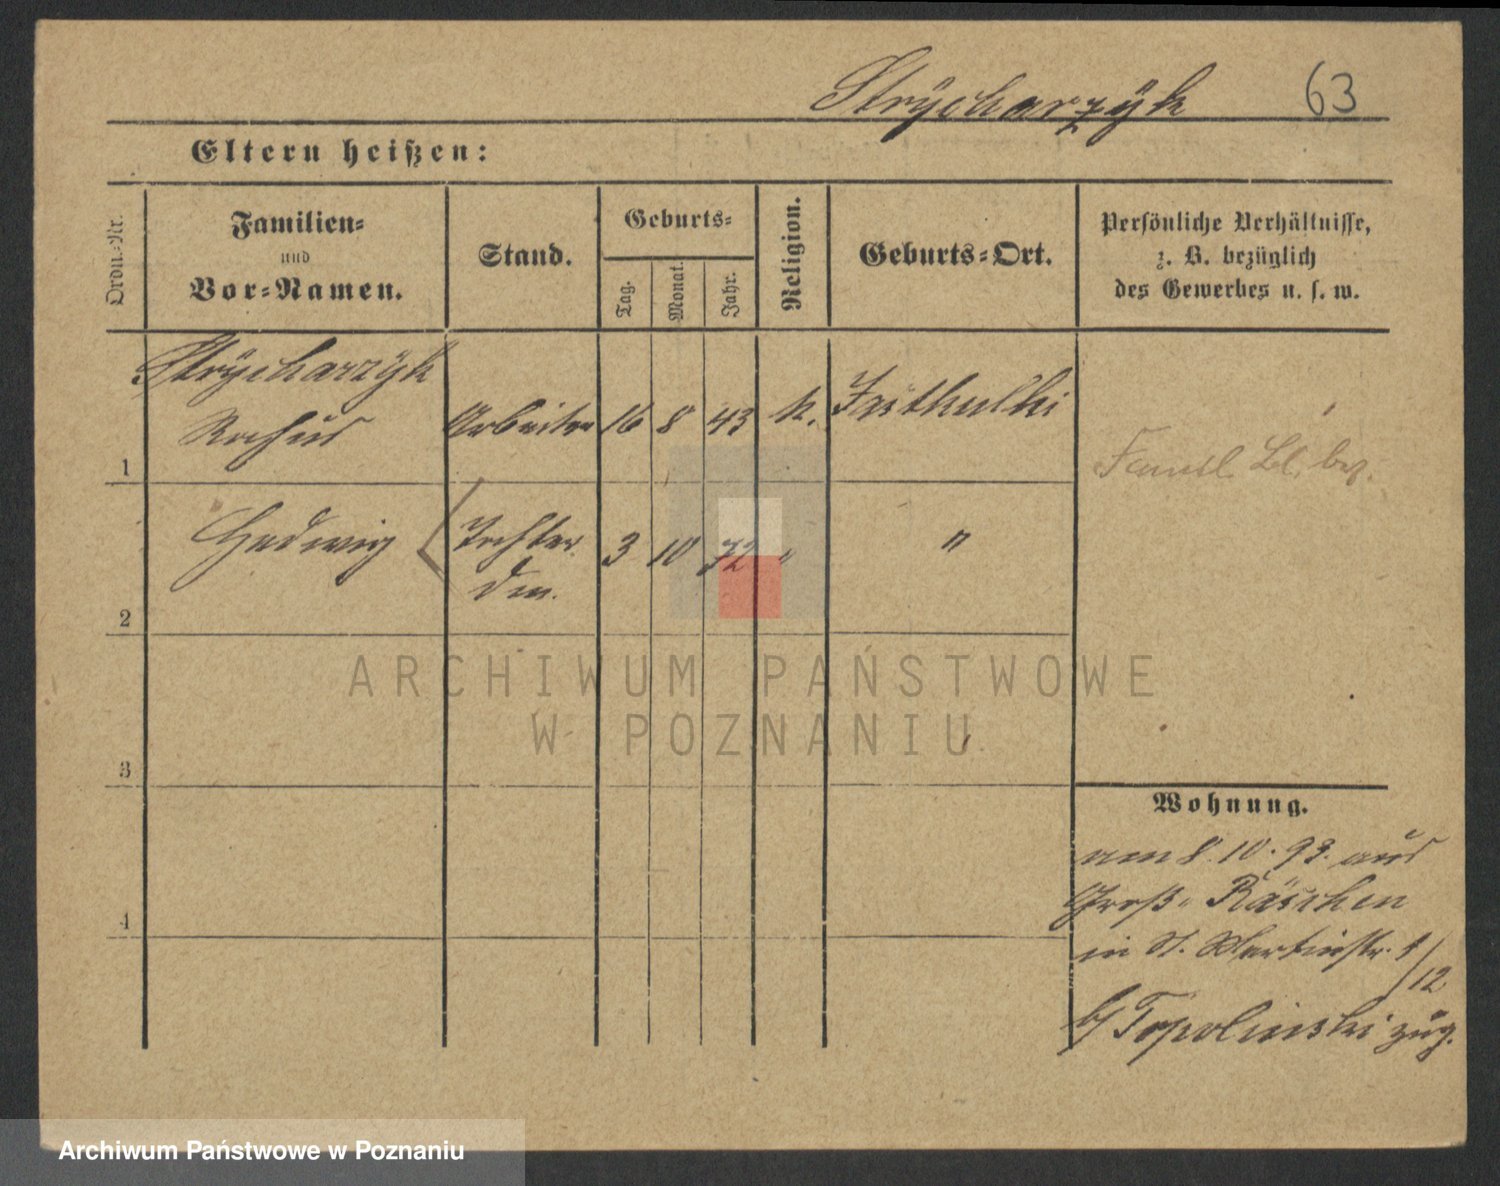 Strÿcharzÿk 63
Eltern heißen:
Ordn.-Nr.
Familien-
und
Vor-Namen.
Stand.
Geburts-
Tag.
Monat.
Jahr.
Religion.
Geburts-Ort.
Persönliche Verhältnisse,
z. B. bezüglich
des Gewerbes u. s. w.
Strÿcharzÿk
1 Rochus Arbeiter 16 8 43 k.
Famil. Bl.
2 Hedwig Tochter 3 10 72 " "
3
4
Wohnung.
am 8.10.93. aus
Groß-Räschen
in St. Martinstr. 1/12
b/ Topolinski zug.
ARCHIWUM PAŃSTWOWE
W POZNANIU
Archiwum Państwowe w Poznaniu